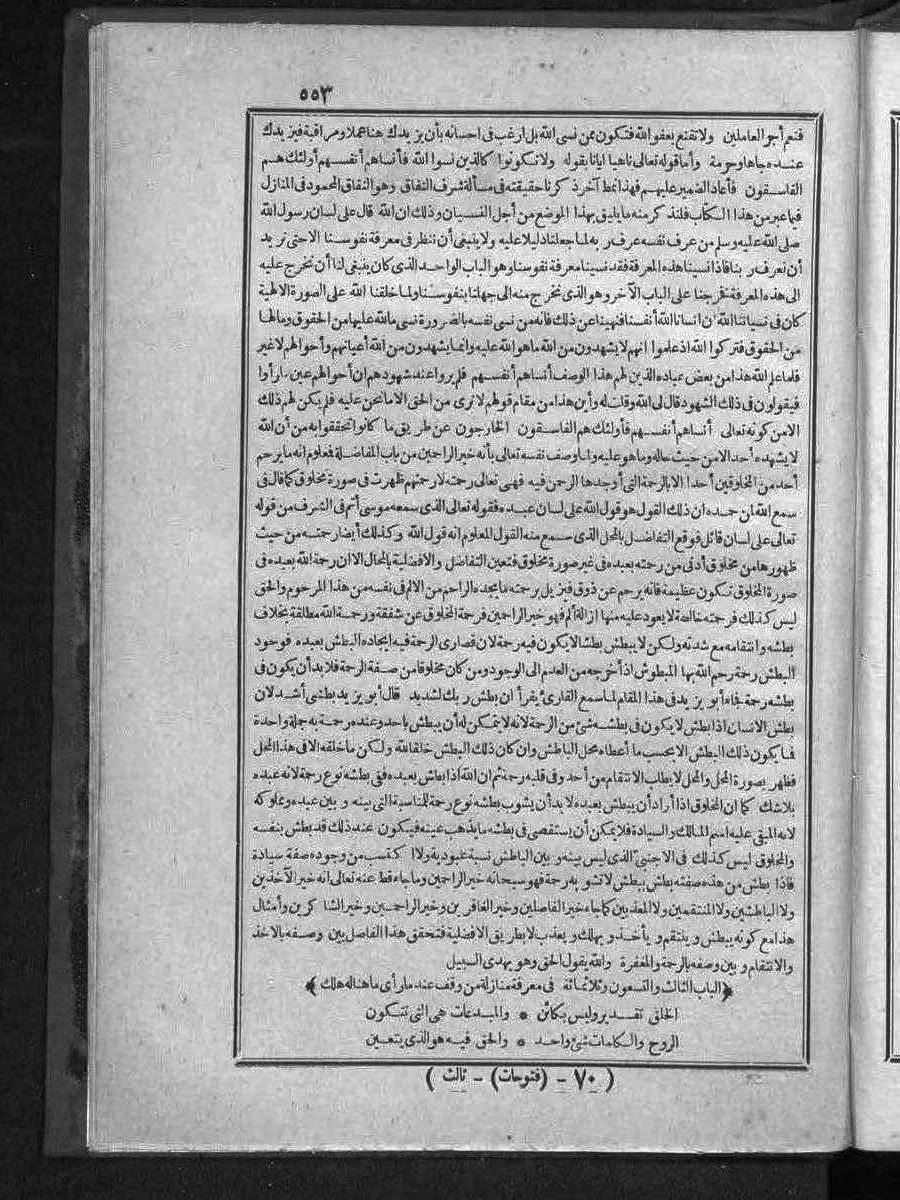 ٥٥٣
فنعم أجر العاملين ولا تقنع بعفو الله فتكون ممن نسى الله بل ارغب فى احسانه بأن يزيدك هنا عملا ومراقبة فيزيدك
عنده جاها وحرمة وأما قوله تعالى ناهيا ايانا بقوله ولا تكونوا كالذين نسوا الله فأنساهم أنفسهم أولئك هم
الفاسقون فأعاد الضمير عليهم فهذا نمط آخر ذكرنا حقيقته فى مسألة شرف النفاق وهو النفاق المحمود فى المنازل
فيما عبر من هذا الكتاب فلنذكر منه ما يليق بهذا الموضع من أجل النسيان وذلك ان الله قال على لسان رسول الله
صلى الله عليه وسلم من عرف نفسه عرف ربه لما جعلنا دليلا عليه ولا ينبغى أن ننظر فى معرفة نفوسنا الا حتى نريد
أن نعرف ربنا فاذا نسينا هذه المعرفة فقد نسينا معرفة نفوسنا وهو الباب الواحد الذى كان ينبغى لنا أن نخرج عليه
الى هذه المعرفة نخرجنا على الباب الآخر وهو الذى نخرج منه الى جهلنا بنفوسنا ولما خلقنا الله على الصورة الالهية
كان فى نسياننا الله أن انسانا الله أنفسنا فنهينا عن ذلك فانه من نسى نفسه بالضرورة نسى ما لله عليها من الحقوق وما لها
من الحقوق فتركوا الله اذ علموا انهم لا يشهدون من الله ما هو الله عليه وانما يشهدون من الله أعيانهم وأحوالهم لا غير
فلما علم الله هذا من بعض عباده الذين لهم هذا الوصف أنساهم أنفسهم فلم يروا عند شهودهم ان أحوالهم عين ما رأوا
فيقولون فى ذلك الشهود قال لى الله وقلت له وأين هذا من مقام قولهم لا نرى من الحق الا ما نحن عليه فلم يكن لهم ذلك
الا من كونه تعالى أنساهم أنفسهم فأولئك هم الفاسقون الخارجون عن طريق ما كانوا تحققوا به من أن الله
لا يشهده أحد الا من حيث حاله وما هو عليه ولما وصف نفسه تعالى بأنه خير الراحمين من باب المفاضلة فمعلوم انه ما يرحم
أحد من المخلوقين أحدا الا بالرحمة التى أوجدها الرحمن فيه فهى تعالى رحمته لا رحمتهم ظهرت فى صورة مخلوق كما قال فى
سمع الله لمن حمده ان ذلك القول هو قول الله على لسان عبده فقوله تعالى الذى سمعه موسى أتم فى الشرف من قوله
تعالى على لسان قائل فوقع التفاضل بالمحل الذى سمع منه القول المعلوم انه قول الله وكذلك أيضا رحمته من حيث
ظهورها من مخلوق أدنى من رحمته بعبده فى غير صورة مخلوق فتعين التفاضل والافضلية بالمحال الا ان رحمة الله بعبده فى
صورة المخلوق تكون عظيمة فانه يرحم عن ذوق فيزيل برحمته ما يجده الراحم من الالم فى نفسه من هذا المرحوم والحق
ليس كذلك فرحمته خالصة لا يعود عليه منها ازالة ألم فهو خير الراحمين فرحمة المخلوق عن شفقة ورحمة الله مطلقة بخلاف
بطشه وانتقامه مع شدته ولكن لا يبطش بطشا لا يكون فيه رحمة لان قصارى الرحمة فيه ايجاده البطش بعبده فوجود
البطش رحمة رحم الله بها المبطوش اذ أخرجه من العدم الى الوجود ومن كان مخلوقا من صفة الرحمة فلا بد أن يكون فى
بطشه رحمة فجاء أبو يزيد فى هذا المقام لما سمع القارئ يقرأ ان بطش ربك لشديد قال أبو يزيد بطشى أشد لان
بطش الانسان اذا بطش لا يكون فى بطشه شئ من الرحمة لانه لا يتمكن له أن يبطش باحد وعنده رحمة به جملة واحدة
فما يكون ذلك البطش الا بحسب ما أعطاه محل الباطش وان كان ذلك البطش خلقا لله ولكن ما خلقه الا فى هذا المحل
فظهر بصورة المحل والمحل لا يطلب الانتقام من أحد وفى قلبه رحمة ثم ان الله اذا بطش بعبده ففى بطشه نوع رحمة لانه عبده
بلا شك كما ان المخلوق اذا أراد أن يبطش بعبده لا بد أن يشوب بطشه نوع رحمة للمناسبة التى بينه وبين عبده ومملوكه
لانه المبقى عليه اسم المالك والسيادة فلا يمكن أن يستقصى فى بطشه ما يذهب عينه فيكون عند ذلك قد بطش بنفسه
والمخلوق ليس كذلك فى الاجنبى الذى ليس بينه وبين الباطش نسبة عبودية ولا اكتسب من وجوده صفة سيادة
فاذا بطش من هذه صفته بطش ببطش لا تشوبه رحمة فهو سبحانه خير الراحمين وما جاء قط عنه تعالى انه خير الآخذين
ولا الباطشين ولا المنتقمين ولا المعذبين كما جاء خير الفاصلين وخير الغافرين وخير الراحمين وخير الشاكرين وأمثال
هذا مع كونه يبطش وينتقم ويأخذ ويهلك ويعذب لا بطريق الافضلية فتحقق هذا الفاصل بين وصفه بالاخذ
والانتقام وبين وصفه بالرحمة والمغفرة والله يقول الحق وهو يهدى السبيل
﴿الباب الثالث والتسعون وثلاثمائة فى معرفة منازلة من وقف عند ما رأى ما هناله هلك﴾
الخلق تقدير وليس بكائن * والمبدعات هى التى تتكون
الروح والكلمات شئ واحد * والحق فيه هو الذى يتعين
( ٧٠ - (فتوحات) - ثالث )